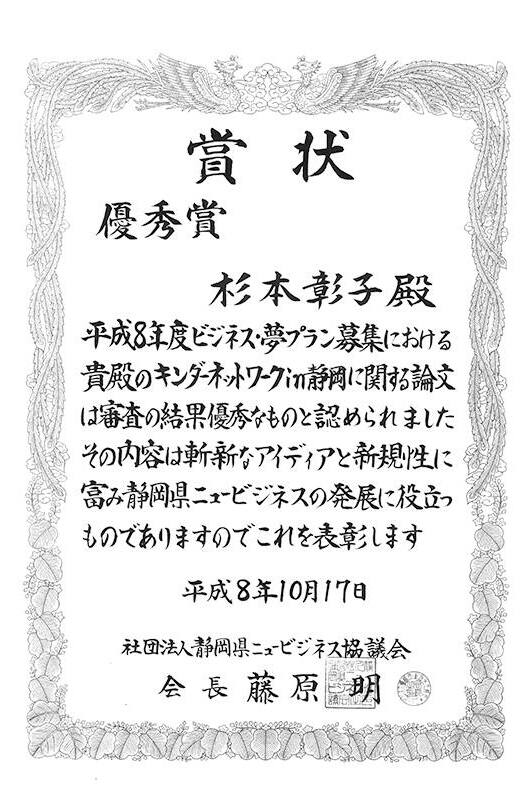 賞状
優秀賞
杉本彰子殿
平成8年度ビジネス・夢プラン募集における
貴殿のキンダーネットワークin静岡に関する論文
は審査の結果優秀なものと認められました
その内容は斬新なアイディアと新規性に
富み静岡県ニュービジネスの発展に役立つ
ものでありますのでこれを表彰します
平成8年10月17日
社団法人静岡県ニュービジネス協議会
会長 藤原 明